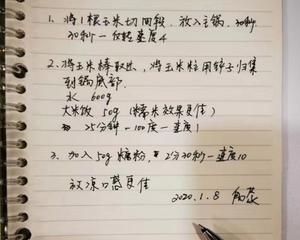 1、将1根玉米切四段，放入主锅，30秒
30秒—反转速度4
2、将玉米棒取出，将玉米粒用铲子归集
到锅底部.
水 600g
大米饭 50g（糯米效果更佳）
25分钟-100度-速度1
3、加入50g糖粉，2分30秒-速度10
放凉口感更佳
2020.1.8